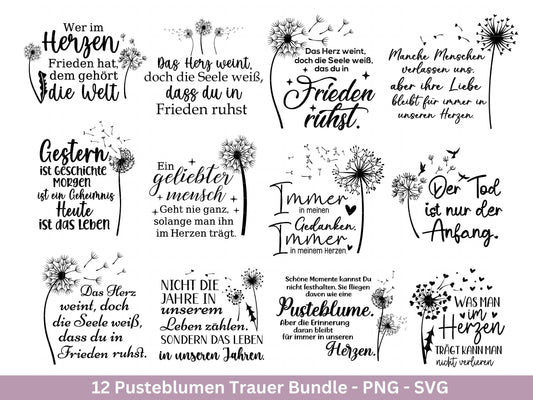 Wer im
Herzen
Frieden hat,
dem gehört
die Welt
Das Herz weint,
doch die Seele weiß,
dass du in
Frieden ruhst
Das Herz weint,
doch die Seele weiß,
das du in
Frieden
ruhst.
Manche Menschen
verlassen uns,
aber ihre Liebe
bleibt für immer in
unseren Herzen.
Gestern
ist Geschichte
Morgen
ist ein Geheimnis
Heute
ist das Leben
Ein
geliebter
mensch
Geht nie ganz,
solange man ihn
im Herzen trägt.
Immer
in meinen
Gedanken.
Immer
in meinem Herzen.
Der Tod
ist nur der
Anfang.
Das Herz
weint, doch
die Seele weiß,
dass du in
Frieden ruhst.
NICHT DIE
JAHRE IN
unserem
Leben zählen.
SONDERN DAS LEBEN
in unseren Jahren.
Schöne Momente kannst Du
nicht festhalten. Sie fliegen
davon wie eine
Pusteblume.
Aber die Erinnerung
daran bleibt
für immer in unseren
Herzen.
WAS MAN
im
Herzen
TRÄGT KANN MAN
nicht verlieren
12 Pusteblumen Trauer Bundle - PNG - SVG